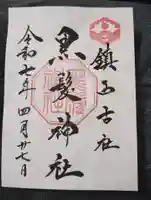 鎮西古社
黒髪神社
令和七年四月廿七日